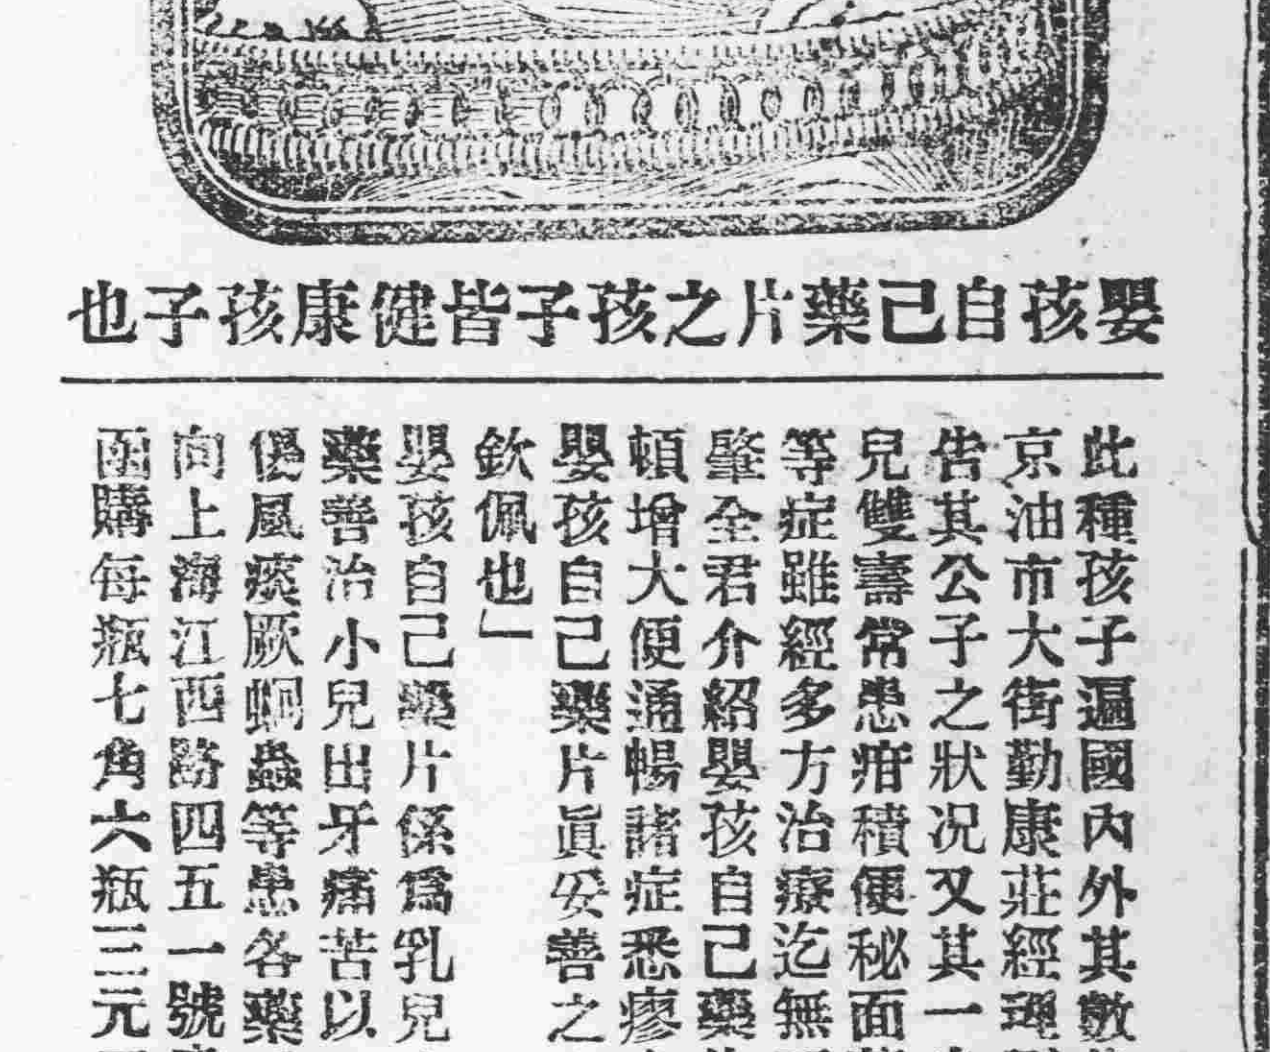 嬰孩自己藥片之孩子皆健康孩子也
此種孩子遍國內外其數
京油市大街勤康莊經理
告其公子之狀况又其一
兒雙壽常患疳積便秘面
等症雖經多方治療迄無
肇全君介紹嬰孩自己藥
頓增大便通暢諸症悉瘳
嬰孩自己藥片眞妥善之
欽佩也」
嬰孩自己藥片係爲乳兒
藥善治小兒出牙痛苦以
傷風痰厥蛔蟲等患各藥
向上海江西路四五一號
函購每瓶七角六瓶三元